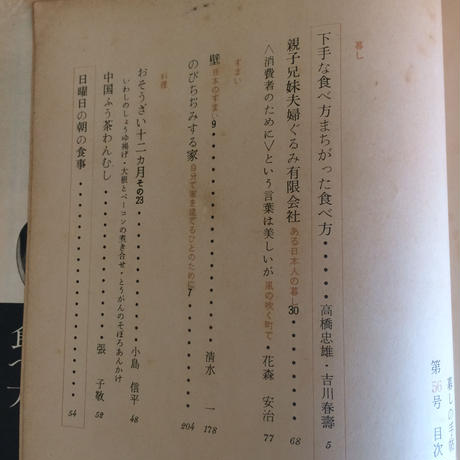 暮しの手帖
第56号 目次
暮し
下手な食べ方まちがった食べ方・・・・・高橋忠雄・吉川春壽 5
親子兄妹夫婦ぐるみ有限会社 ある日本人の暮し30・・・・・・・・・68
〈消費者のために〉という言葉は美しいが 風の吹く町で・花森 安治 77
すまい
壁 日本のすまい9・・・・・・・・・・・清水 一 178
のびちぢみする家 自分で家を建てるひとのために7・・・・・・・・204
料理
おそうざい十二カ月 その23・・・・・・・小島 信平 48
いわしのしょうゆ揚げ・大根とベーコンの煮き合せ・とうがんのそぼろあんかけ
中国ふう茶わんむし・・・・・・・・・・張 子敬 52
日曜日の朝の食事・・・・・・・・・・・54